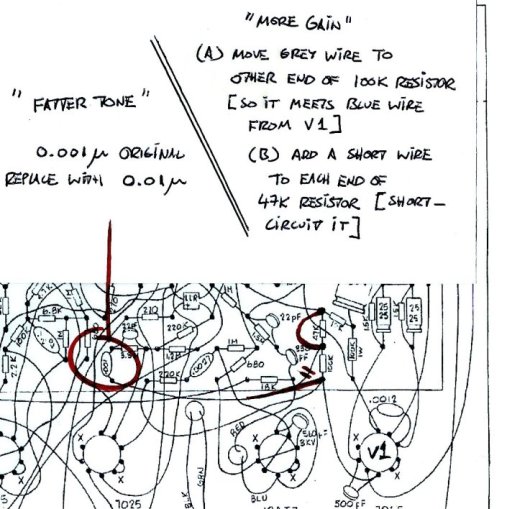 "MORE GAIN"
(A) MOVE GREY WIRE TO
OTHER END OF 100K RESISTOR
[SO IT MEETS BLUE WIRE
FROM V1]
(B) ADD A SHORT WIRE
TO EACH END OF
47K RESISTOR [SHORT-
CIRCUIT IT]
"FATTER TONE"
0.001µ ORIGINAL
REPLACE WITH 0.01µ
6.8K
210
220K
1M
22PF
25
25
2.2K
1M
680
220K
18K
100K
1W
.0012
RED
560PF
3KV
X
X
X
X
V1
7025
BLK
GRN
BLU
500PF